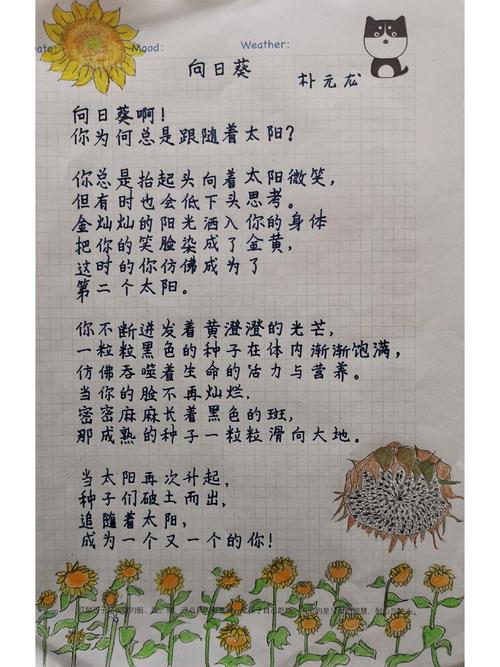 Date: Mood: Weather:
向日葵
朴元龙
向日葵啊！
你为何总是跟随着太阳？
你总是抬起头向着太阳微笑，
但有时也会低下头思考。
金灿灿的阳光洒入你的身体
把你的笑脸染成了金黄，
这时的你仿佛成为了
第二个太阳。
你不断迸发着黄澄澄的光芒，
一粒粒黑色的种子在体内渐渐饱满，
仿佛吞噬着生命的活力与营养。
当你的脸不再灿烂，
密密麻麻长着黑色的斑，
那成熟的种子一粒粒滑向大地。
当太阳再次升起，
种子们破土而出，
追随着太阳，
成为一个又一个的你！